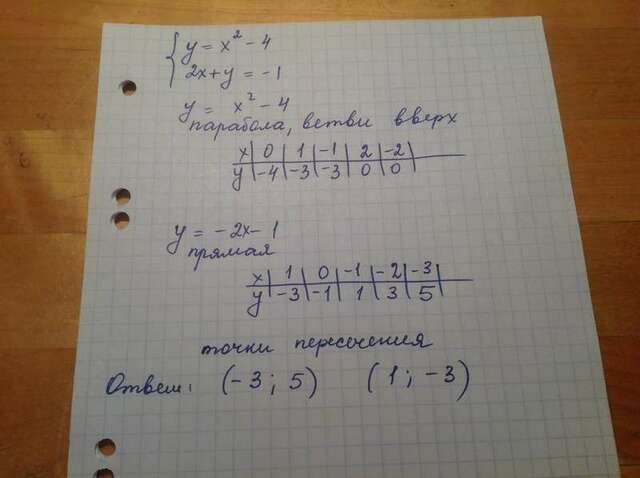 y = x² - 4
2x + y = -1
y = x² - 4
парабола, ветви вверх
x | 0 | 1 | -1 | 2 | -2 |
y | -4 | -3 | -3 | 0 | 0 |
y = -2x - 1
прямая
x | 1 | 0 | -1 | -2 | -3 |
y | -3 | -1 | 1 | 3 | 5 |
точки пересечения
Ответ: (-3; 5) (1; -3)